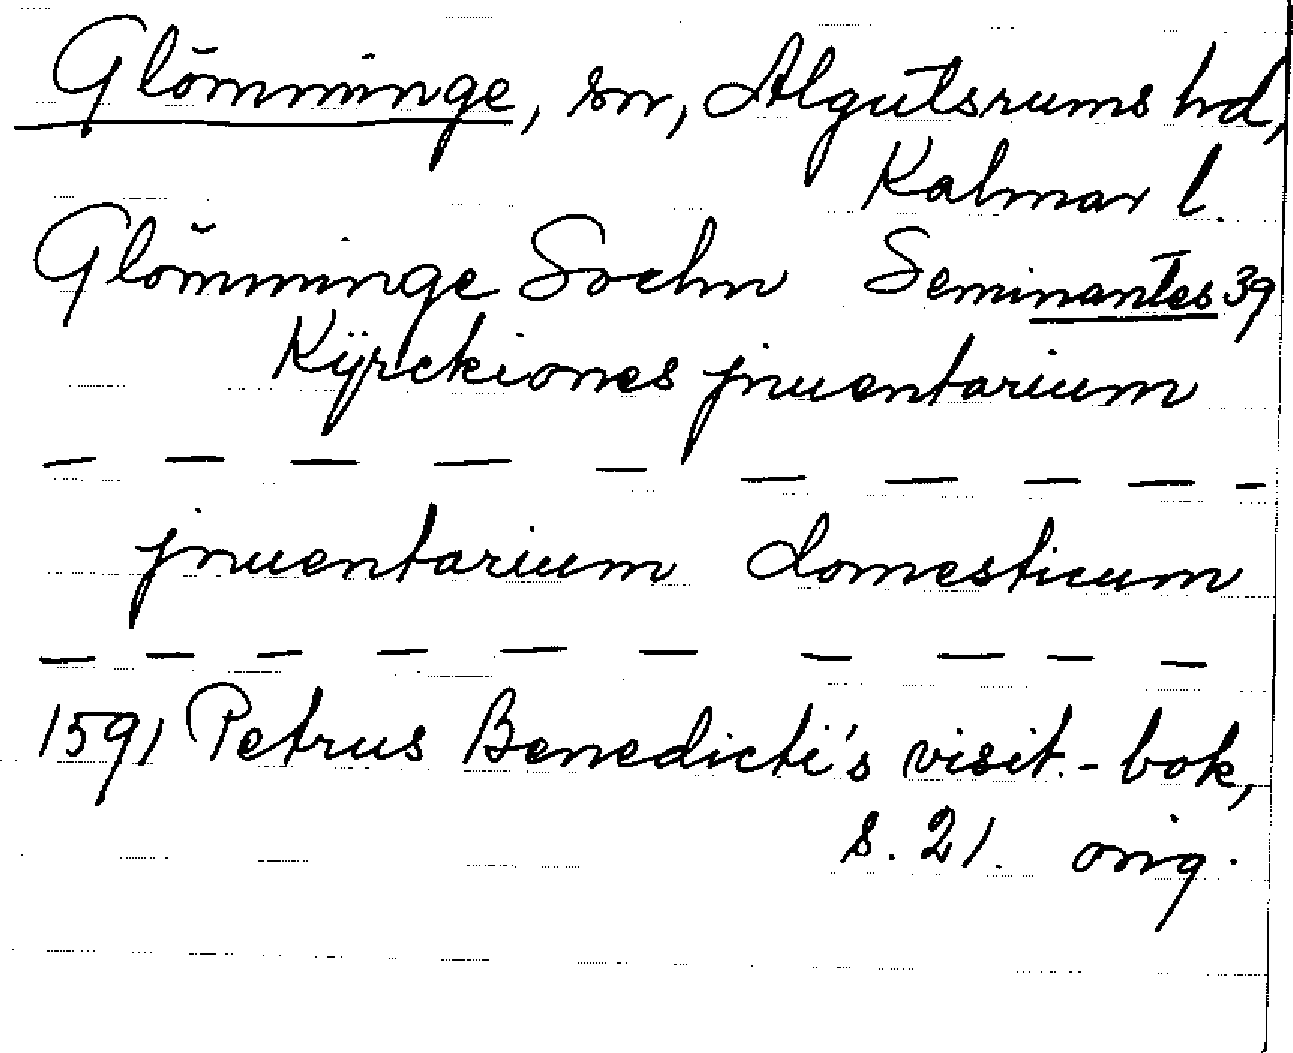 Glömminge, sn, Algutsrums hd,
Kalmar l.
Glömminge Sochn Seminantes 39
Kÿrckiones jnuentarium
— — — — — — — — — —
jnuentarium domesticum
— — — — — — — — — —
1591 Petrus Benedicti's visit.-bok,
s. 21. orig.